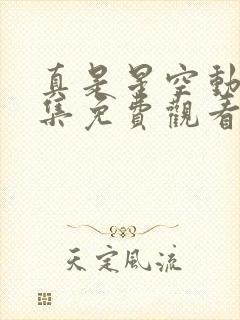 真是星空動
集免費觀看
天定風流